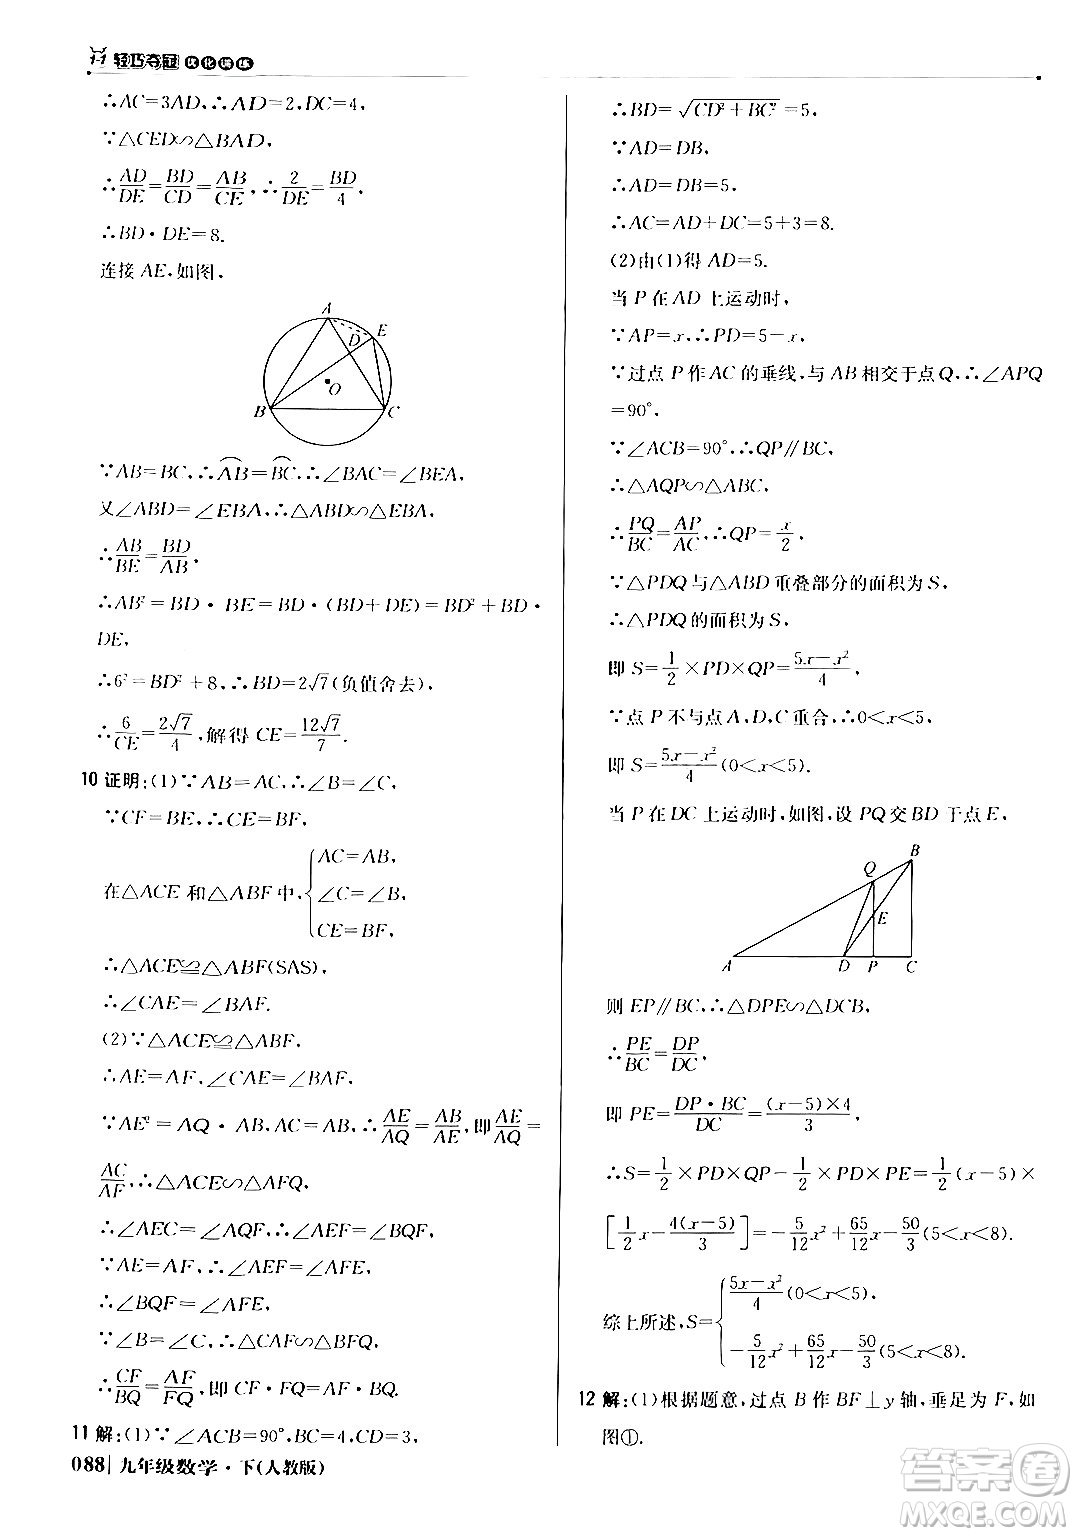 轻巧夺冠 优化训练
∴AC=3AD,∴AD=2,DC=4,
∵△CED∽△BAD,
∴AD/DE=BD/CD=AB/CE,∴2/DE=BD/4.
∴BD·DE=8.
连接AE,如图.
A
E
D
O
B
C
∵AB=BC,∴AB=BC,∴∠BAC=∠BEA,
又∠ABD=∠EBA,∴△ABD∽△EBA,
∴AB/BE=BD/AB.
∴AB²=BD·BE=BD·(BD+DE)=BD²+BD·
DE,
∴6²=BD²+8,∴BD=2√7(负值舍去),
∴6/CE=2√7/4,解得CE=12√7/7.
10 证明:(1)∵AB=AC,∴∠B=∠C,
∵CF=BE,∴CE=BF,
在△ACE和△ABF中,{AC=AB,
∠C=∠B,
CE=BF,
∴△ACE≌△ABF(SAS),
∴∠CAE=∠BAF.
(2)∵△ACE≌△ABF,
∴AE=AF,∠CAE=∠BAF,
∵AE²=AQ·AB,AC=AB,∴AE/AQ=AB/AE,即AE/AQ=
AC/AF,∴△ACE∽△AFQ,
∴∠AEC=∠AQF,∴∠AEF=∠BQF,
∵AE=AF,∴∠AEF=∠AFE,
∴∠BQF=∠AFE,
∵∠B=∠C,∴△CAF∽△BFQ,
∴CF/BQ=AF/FQ,即CF·FQ=AF·BQ.
11 解:(1)∵∠ACB=90°,BC=4,CD=3,
088 九年级数学·下(人教版)
∴BD=√(CD²+BC²)=5,
∵AD=DB,
∴AD=DB=5,
∴AC=AD+DC=5+3=8.
(2)由(1)得AD=5.
当P在AD上运动时,
∵AP=x,∴PD=5-x,
∵过点P作AC的垂线,与AB相交于点Q,∴∠APQ
=90°,
∵∠ACB=90°,∴QP∥BC,
∴△AQP∽△ABC,
∴PQ/BC=AP/AC,∴QP=x/2,
∵△PDQ与△ABD重叠部分的面积为S,
∴△PDQ的面积为S,
即S=1/2×PD×QP=(5x-x²)/4,
∵点P不与点A,D,C重合,∴0<x<5,
即S=(5x-x²)/4(0<x<5).
当P在DC上运动时,如图,设PQ交BD于点E,
B
Q
E
A
D
P
C
则EP∥BC,∴△DPE∽△DCB,
∴PE/BC=DP/DC,
即PE=DP·BC/DC=(x-5)×4/3,
∴S=1/2×PD×QP-1/2×PD×PE=1/2(x-5)×
[1/2x-4(x-5)/3]=-5/12x²+65/12x-50/3(5<x<8).
综上所述,S={(5x-x²)/4(0<x<5),
-5/12x²+65/12x-50/3(5<x<8).
12 解:(1)根据题意,过点B作BF⊥y轴,垂足为F,如
图①.
答案圈
MXQE.COM